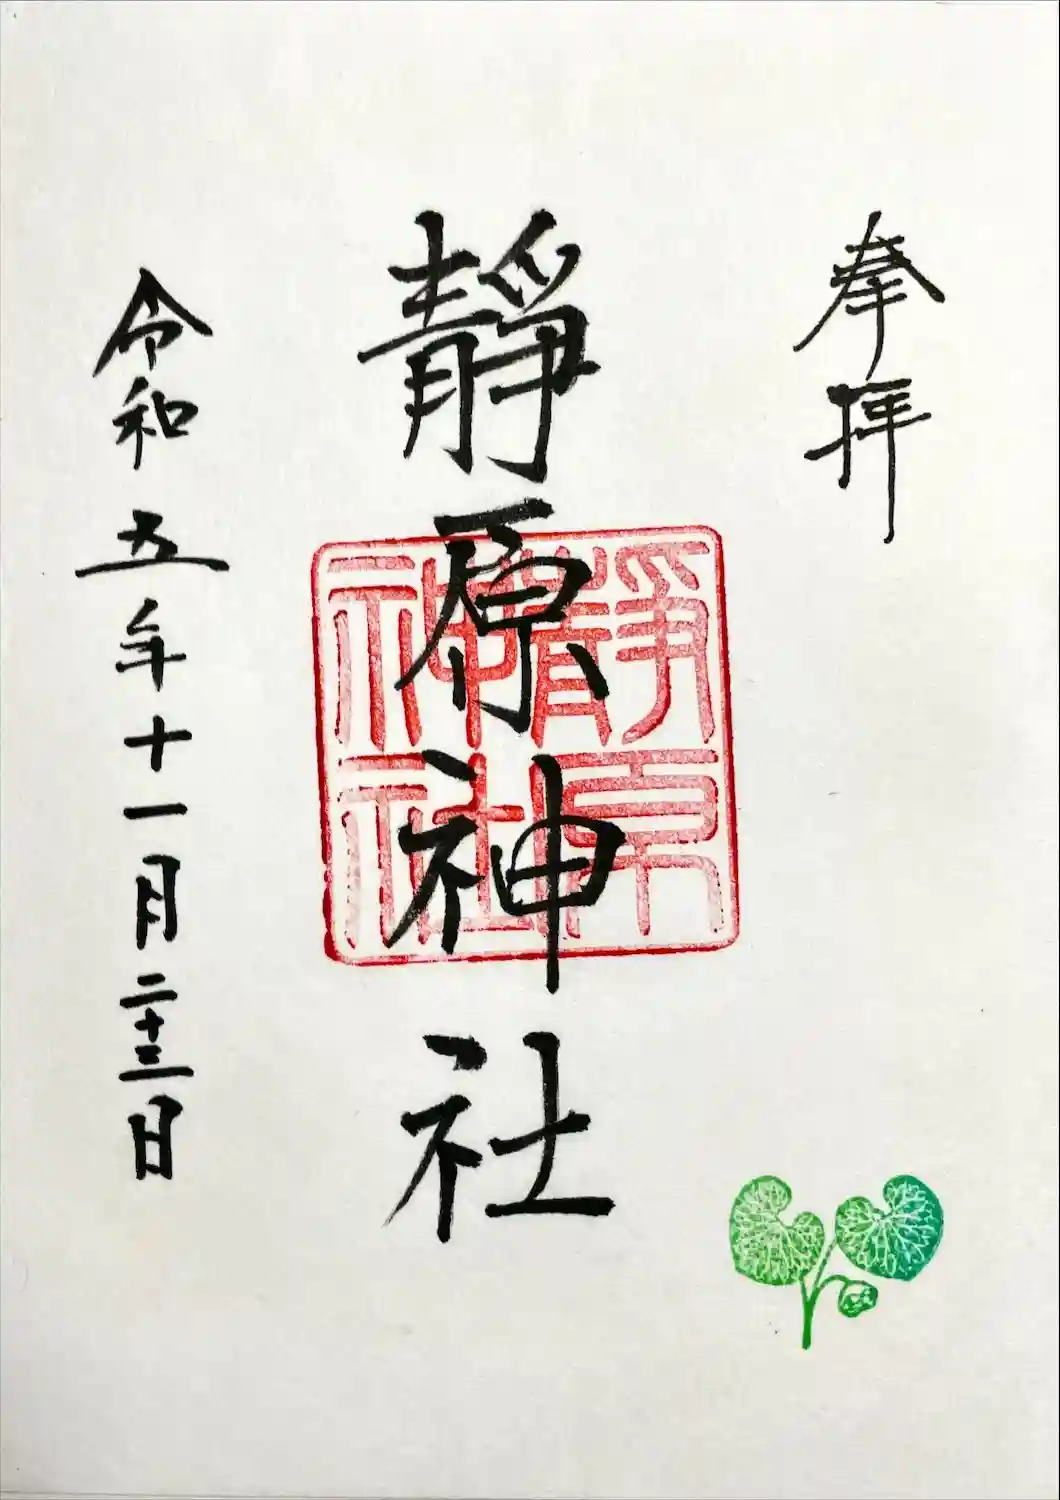 奉拝
靜原神社
靜原
神社
令和五年十一月二十三日